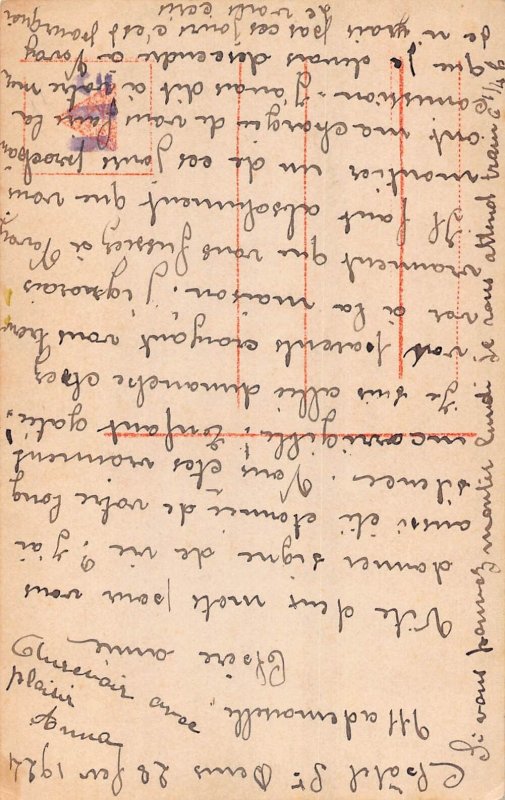 Châtel St Denis 28 fev 1924
Mademoiselle,
Chère amie
Vite deux mots pour vous
donner signe de vie, j'ai
aussi été étonnée de votre long
silence. Vous êtes vraiment
incorrigible. Enfant gatée.
Je suis allée dimanche chez
vos parents croyant vous trou
ver à la maison. J'ignorais
vraiment que vous fussiez à
Il faut absolument que vous
montiez un de ces jours prochain
ont ma chargée de vous faire la
comission. J'avais dit à votre
que je devais descendre à
Je n'irais pas ces jours c'est pourquoi
Je vous écris
Si vous pouvez monter lundi je vous attend train 2 1/4
Au revoir avec
plaisir